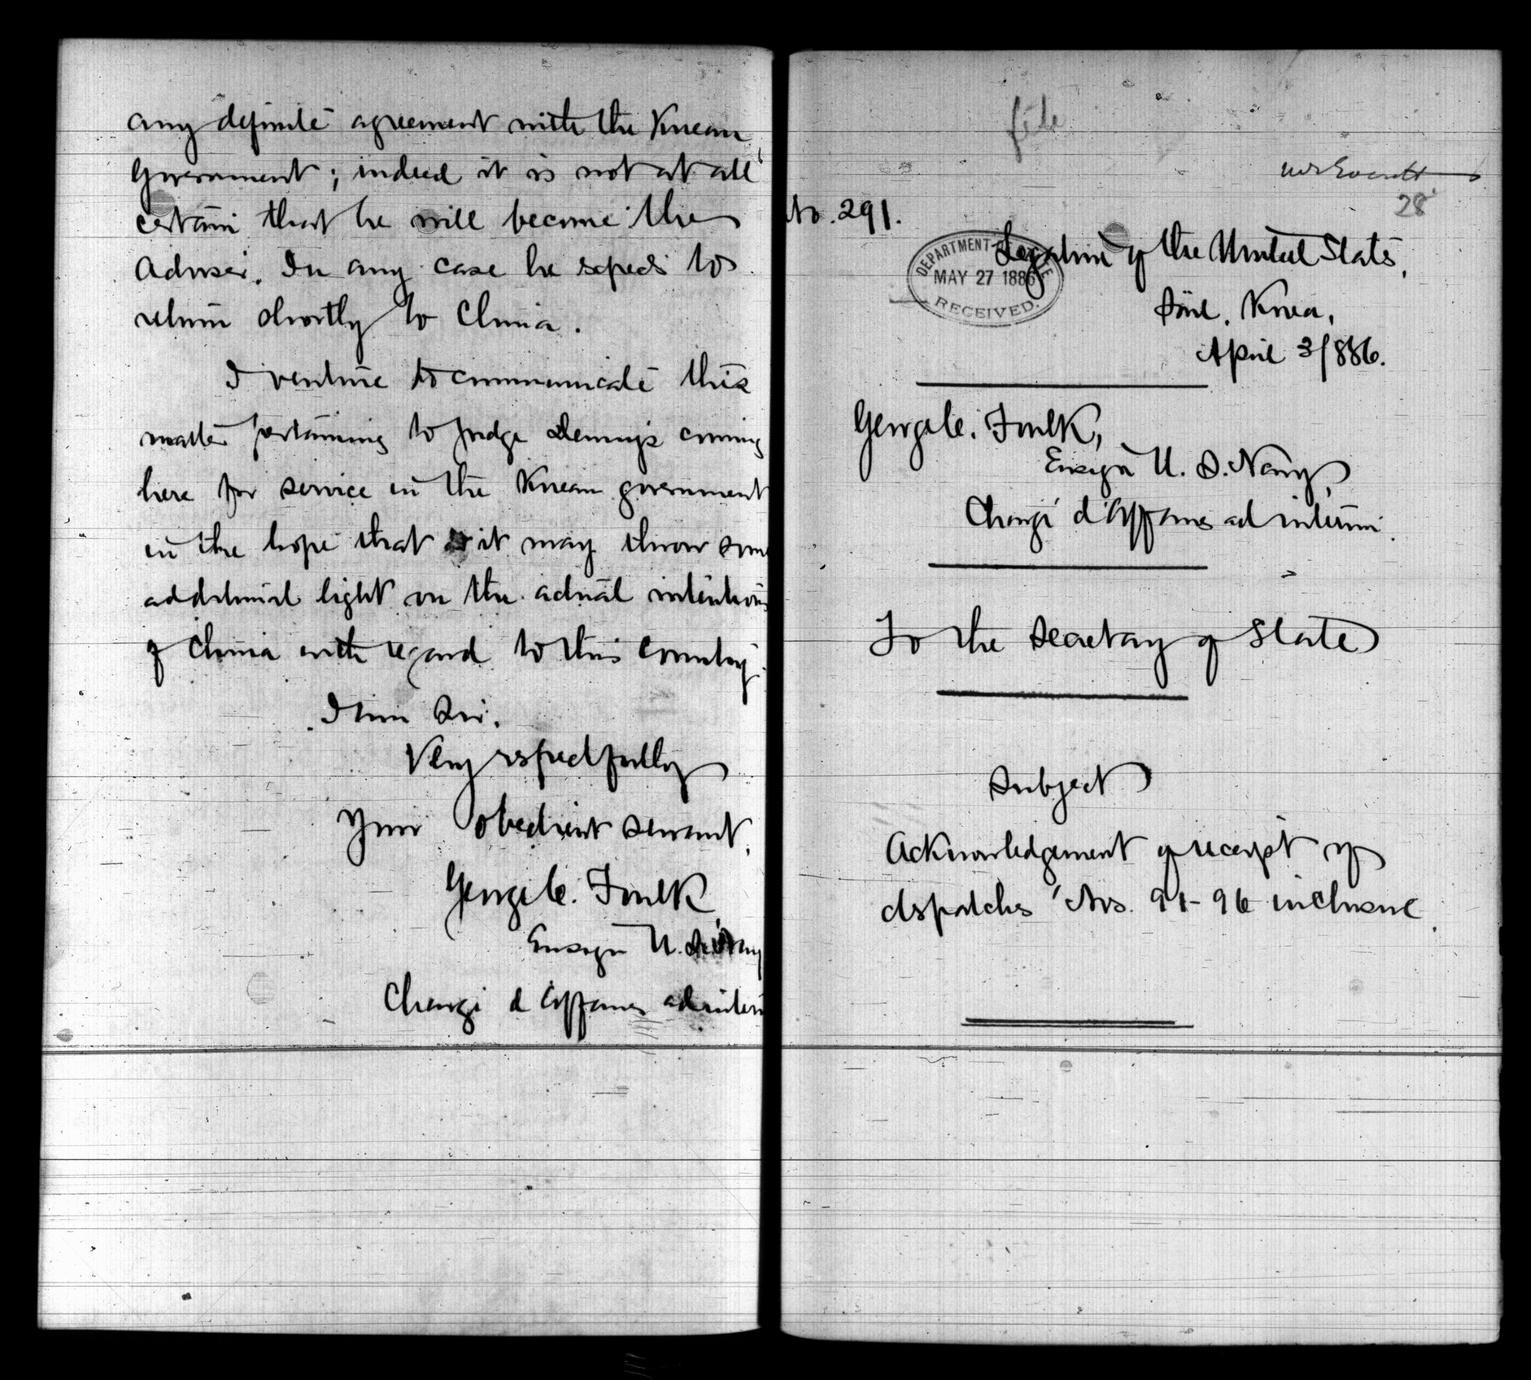 any definite agreement with the Korean
Government; indeed it is not at all
certain that he will become the
Adviser. In any case he expects to
return shortly to China.
I venture to communicate this
matter pertaining to Judge Denny's coming
here for service in the Korean government
in the hope that it may throw some
additional light on the actual intentions
of China with regard to this country.
I am Sir,
Very respectfully
Your obedient servant,
George C. Foulk,
Ensign U.S. Navy
Chargé d'Affaires ad interim
file
Mr Everett
28
No. 291.
Legation of the United States,
Söul, Korea,
April 3/886.
DEPARTMENT OF STATE
MAY 27 1886
RECEIVED.
George C. Foulk,
Ensign U. S. Navy,
Chargé d'Affaires ad interim.
To the Secretary of State
Subject
Acknowledgement of receipt of
dispatches Nos. 91-96 inclusive